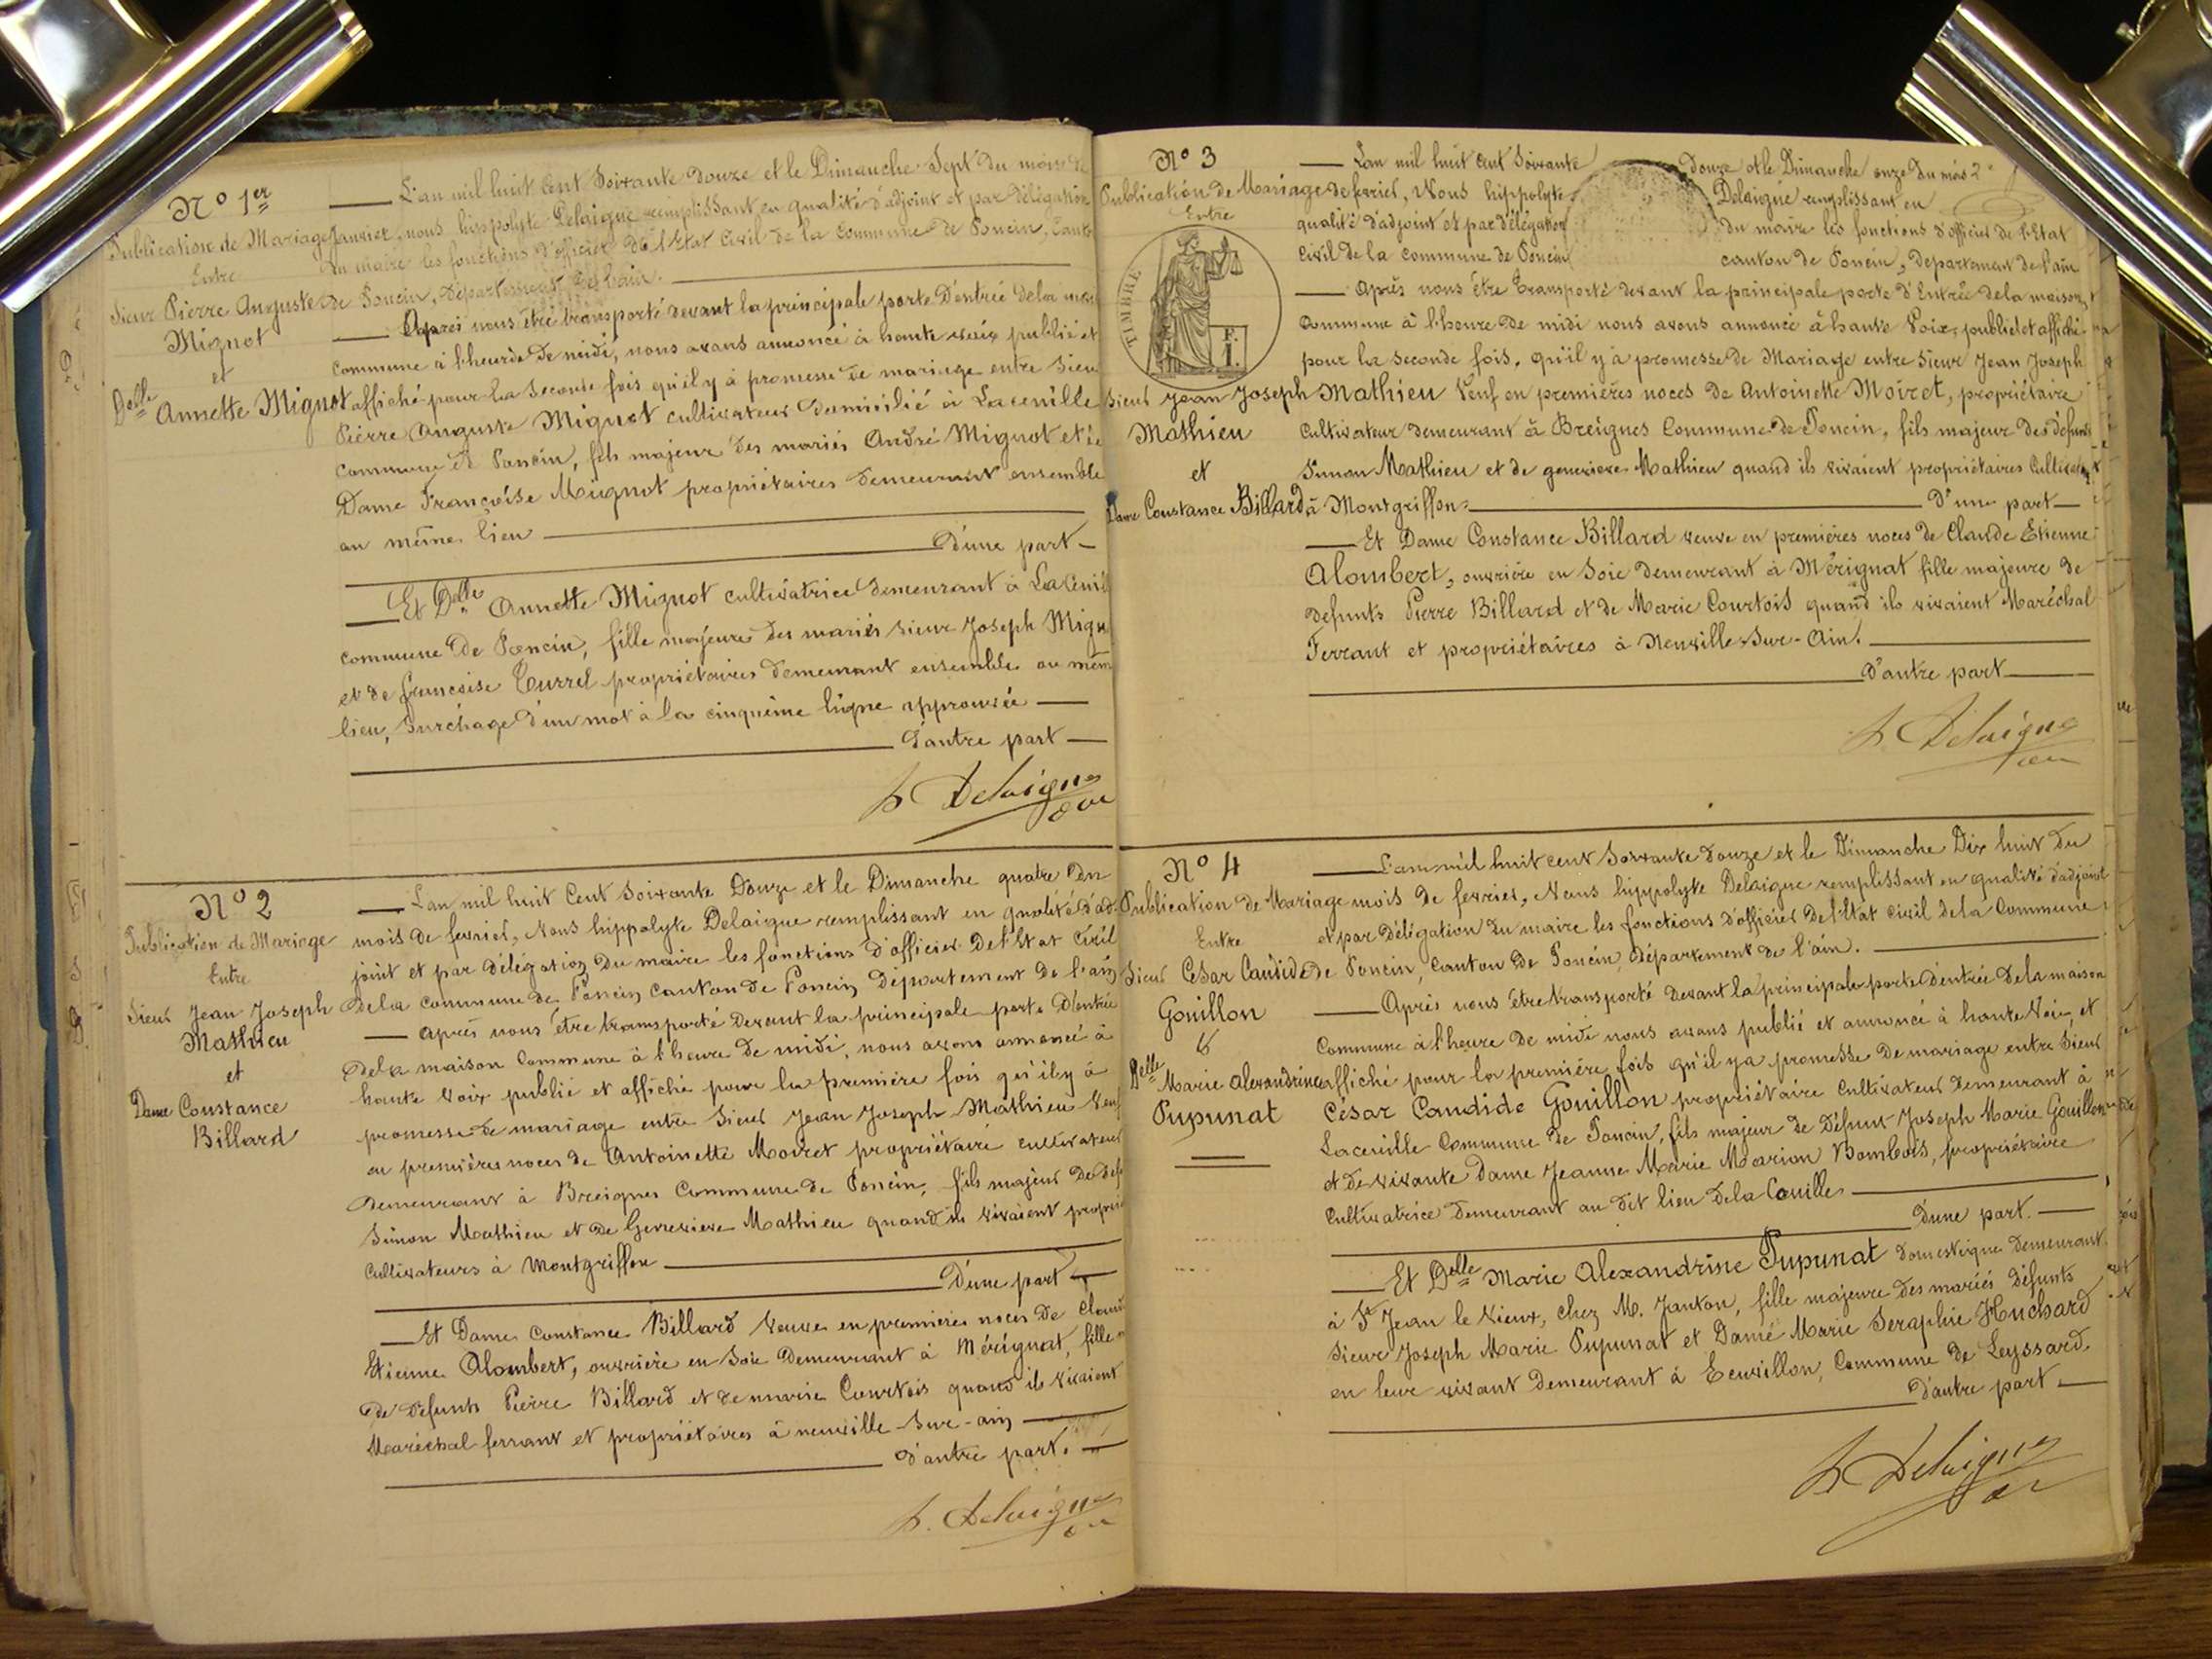 N° 1er
Publication de Mariage
Entre
Sieur Pierre Auguste
Mignot
et
Delle Annette Mignot
L'an mil huit Cent Soixante douze et le Dimanche Sept du mois de
Janvier, nous hippolyte Delaigue remplissant en qualité d'adjoint et par délégation
du maire les fonctions d'officier de l'Etat Civil de la Commune de Poncin, Canton
de Poncin, Département de l'ain.
Après nous être transporté devant la principale porte D'entrée de la
commune à l'heure de midi, nous avons annoncé à haute voix publié et
affiché pour la Seconde fois qu'il y à promesse de mariage entre Sieur
Pierre Auguste Mignot cultivateur domicilié à Laceuille
commune de Poncin, fils majeur des mariés André Mignot et de
Dame Françoise Mignot propriétaires demeurant ensemble
au même lieu
D'une part
Et Delle Annette Mignot cultivatrice demeurant à
commune de Poncin, fille majeure des mariés sieur Joseph
et de françoise Turrel propriétaires demeurant ensemble au
lieu, Surchage d'un mot à la cinquième ligne approuvée
D'autre part
h Delaigue
N° 2
Publication de Mariage
Entre
Sieur Jean Joseph
Mathieu
et
Dame Constance
Billard
L'an mil huit Cent Soixante Douze et le Dimanche quatre du
mois de fevrier, Nous hippolyte Delaigue remplissant en qualité d'ad-
joint et par délégation du maire les fonctions d'officier De l'Etat Civil
de la commune de Poncin canton de Poncin Département de l'ain
Après nous être transporté Devant la principale porte D'entrée
de la maison Commune à l'heure de midi, nous avons annoncé à
haute voix publié et affiché pour la première fois qu'il y à
promesse de mariage entre Sieur Jean Joseph Mathieu Veuf
en premières noces de Antoinette Moiret propriétaire cultivateur
Demeurant à Breignes Commune de Poncin, fils majeur De
Simon Mathieu et de Genevieve Mathieu quand ils vivaient
Cultivateurs à Montgriffon
D'une part
Et Dame Constance Billard Veuve en premières noces de
Etienne Alombert, ouvrière en Soie Demeurant à Mérignat, fille
de défunts Pierre Billard et de marie Courtois quand ils vivaient
Maréchal ferrant et propriétaires à neuville-Sur-ain
D'autre part.
h. Delaigue
N° 3
Publication de Mariage
Entre
TIMBRE
F.
1.
Sieur Jean Joseph
Mathieu
et
Dame Constance Billard
L'an mil huit Cent Soixante douze et le Dimanche onze du mois
de fevrier, Nous hippolyte Delaigue remplissant en
qualité d'adjoint et par délégation du maire les fonctions d'officier de l'Etat
Civil de la Commune de Poncin canton de Poncin, Département de l'ain
Après nous être transporté devant la principale porte d'Entrée de la maison
Commune à l'heure de midi nous avons annoncé à haute Voix, publié et affiché
pour la seconde fois, qu'il y à promesse de Mariage entre Sieur Jean Joseph
Mathieu Veuf en premières noces de Antoinette Moiret, propriétaire
Cultivateur demeurant à Breignes Commune de Poncin, fils majeur des défunts
Simon Mathieu et de genevieve Mathieu quand ils vivaient propriétaires
à Montgriffon.
D'une part
Et Dame Constance Billard veuve en premières noces de Claude Etienne
Alombert, ouvrière en Soie demeurant à Mérignat fille majeure de
defunts Pierre Billard et de Marie Courtois quand ils vivaient Maréchal
Ferrant et propriétaires à Neuville-Sur-Ain.
D'autre part
h Delaigue
N° 4
Publication de Mariage
Entre
Sieur César Candide
Gouillon
&
Delle Marie Alexandrine
Pupunat
L'an mil huit cent Soixante douze et le Dimanche Dix huit du
mois de fevrier, Nous hippolyte Delaigue remplissant en qualité d'adjoint
et par délégation du maire les fonctions d'officier De l'Etat civil de la Commune
de Poncin, Canton de Poncin, Département de l'ain.
Après nous être transporté Devant la principale porte d'entrée de la maison
Commune à l'heure De midi nous avons publié et annoncé à haute Voix, et
affiché pour la première fois qu'il y a promesse De mariage entre Sieur
César Candide Gouillon propriétaire Cultivateur demeurant à
Laceuille Commune de Poncin, fils majeur de Défunt Joseph Marie Gouillon
et De vivante Dame Jeanne Marie Marion Bombois, propriétaire
Cultivatrice Demeurant au dit lieu de la Couille
D'une part.
Et Delle Marie Alexandrine Pupunat domestique demeurant
à St Jean le Vieux, chez M. Janton, fille majeure des mariés défunts
Sieur Joseph Marie Pupunat et Damé Marie Seraphie Huchard
en leur vivant demeurant à Leuvillon, Commune de Leyssard,
D'autre part.
h Delaigue